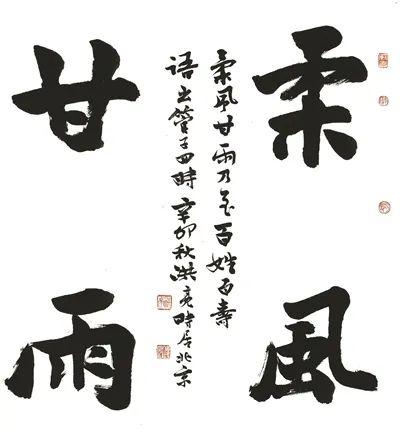 柔風
柔風甘雨乃至百姓壽
語出管子四時 辛卯秋洪亮時居北京
甘雨